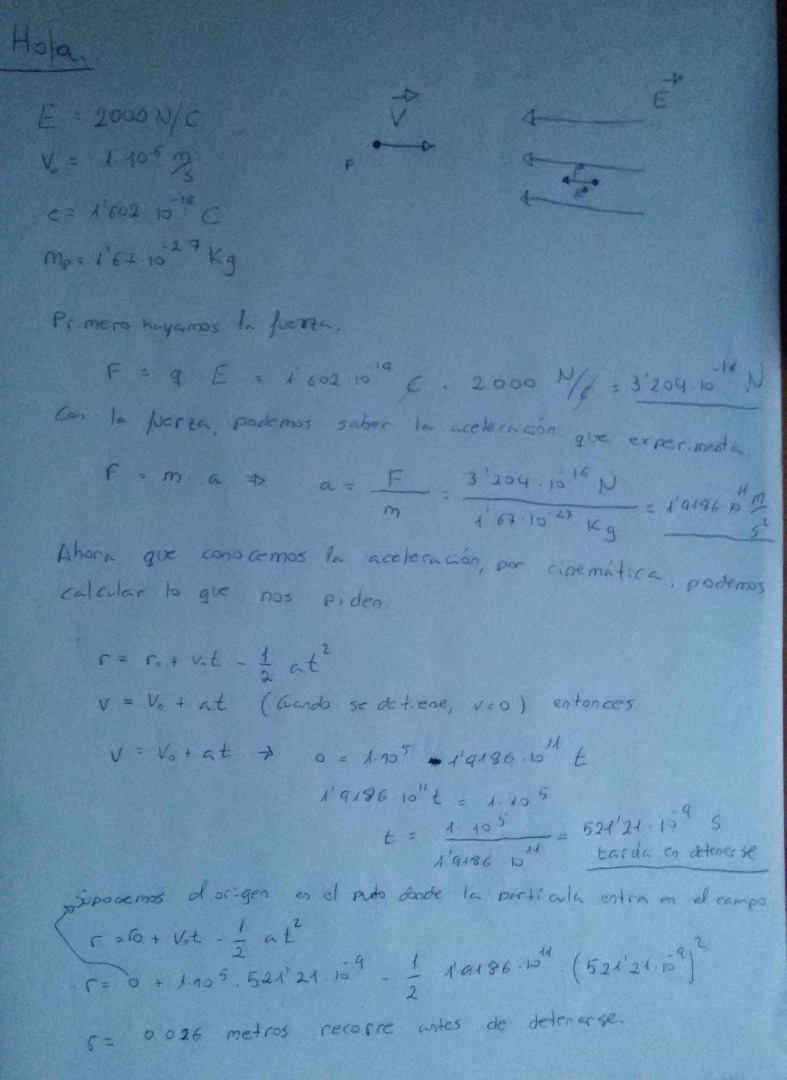 Hola.
E = 2000 N/C
V₀ = 1·10⁵ m/s
e = 1'602·10⁻¹⁹ C
mp = 1'67·10⁻²⁷ Kg
V
P
E
F
Primero hayamos la fuerza.
F = q E = 1'602 10⁻¹⁹ C · 2000 N/C = 3'204·10⁻¹⁶ N
Con la fuerza, podemos saber la aceleración que experimenta
F = m · a ⇒ a = F/m = 3'204·10⁻¹⁶ N / 1'67·10⁻²⁷ Kg = 1'9186 10¹¹ m/s²
Ahora que conocemos la aceleración, por cinemática, podemos
calcular lo que nos piden
r = r₀ + v₀t - 1/2 at²
v = V₀ + at (Cuando se detiene, v=0) entonces
v = V₀ + at → 0 = 1·10⁵ - 1'9186·10¹¹ t
1'9186 10¹¹ t = 1·10⁵
t = 1 10⁵ / 1'9186 10¹¹ = 521'21·10⁻⁹ s
tarda en detenerse
Suponemos el origen en el punto donde la partícula entra en el campo
r = r₀ + V₀t - 1/2 at²
r = 0 + 1·10⁵ · 521'21·10⁻⁹ - 1/2 1'9186·10¹¹ (521'21·10⁻⁹)²
r = 0'026 metros recorre antes de detenerse.